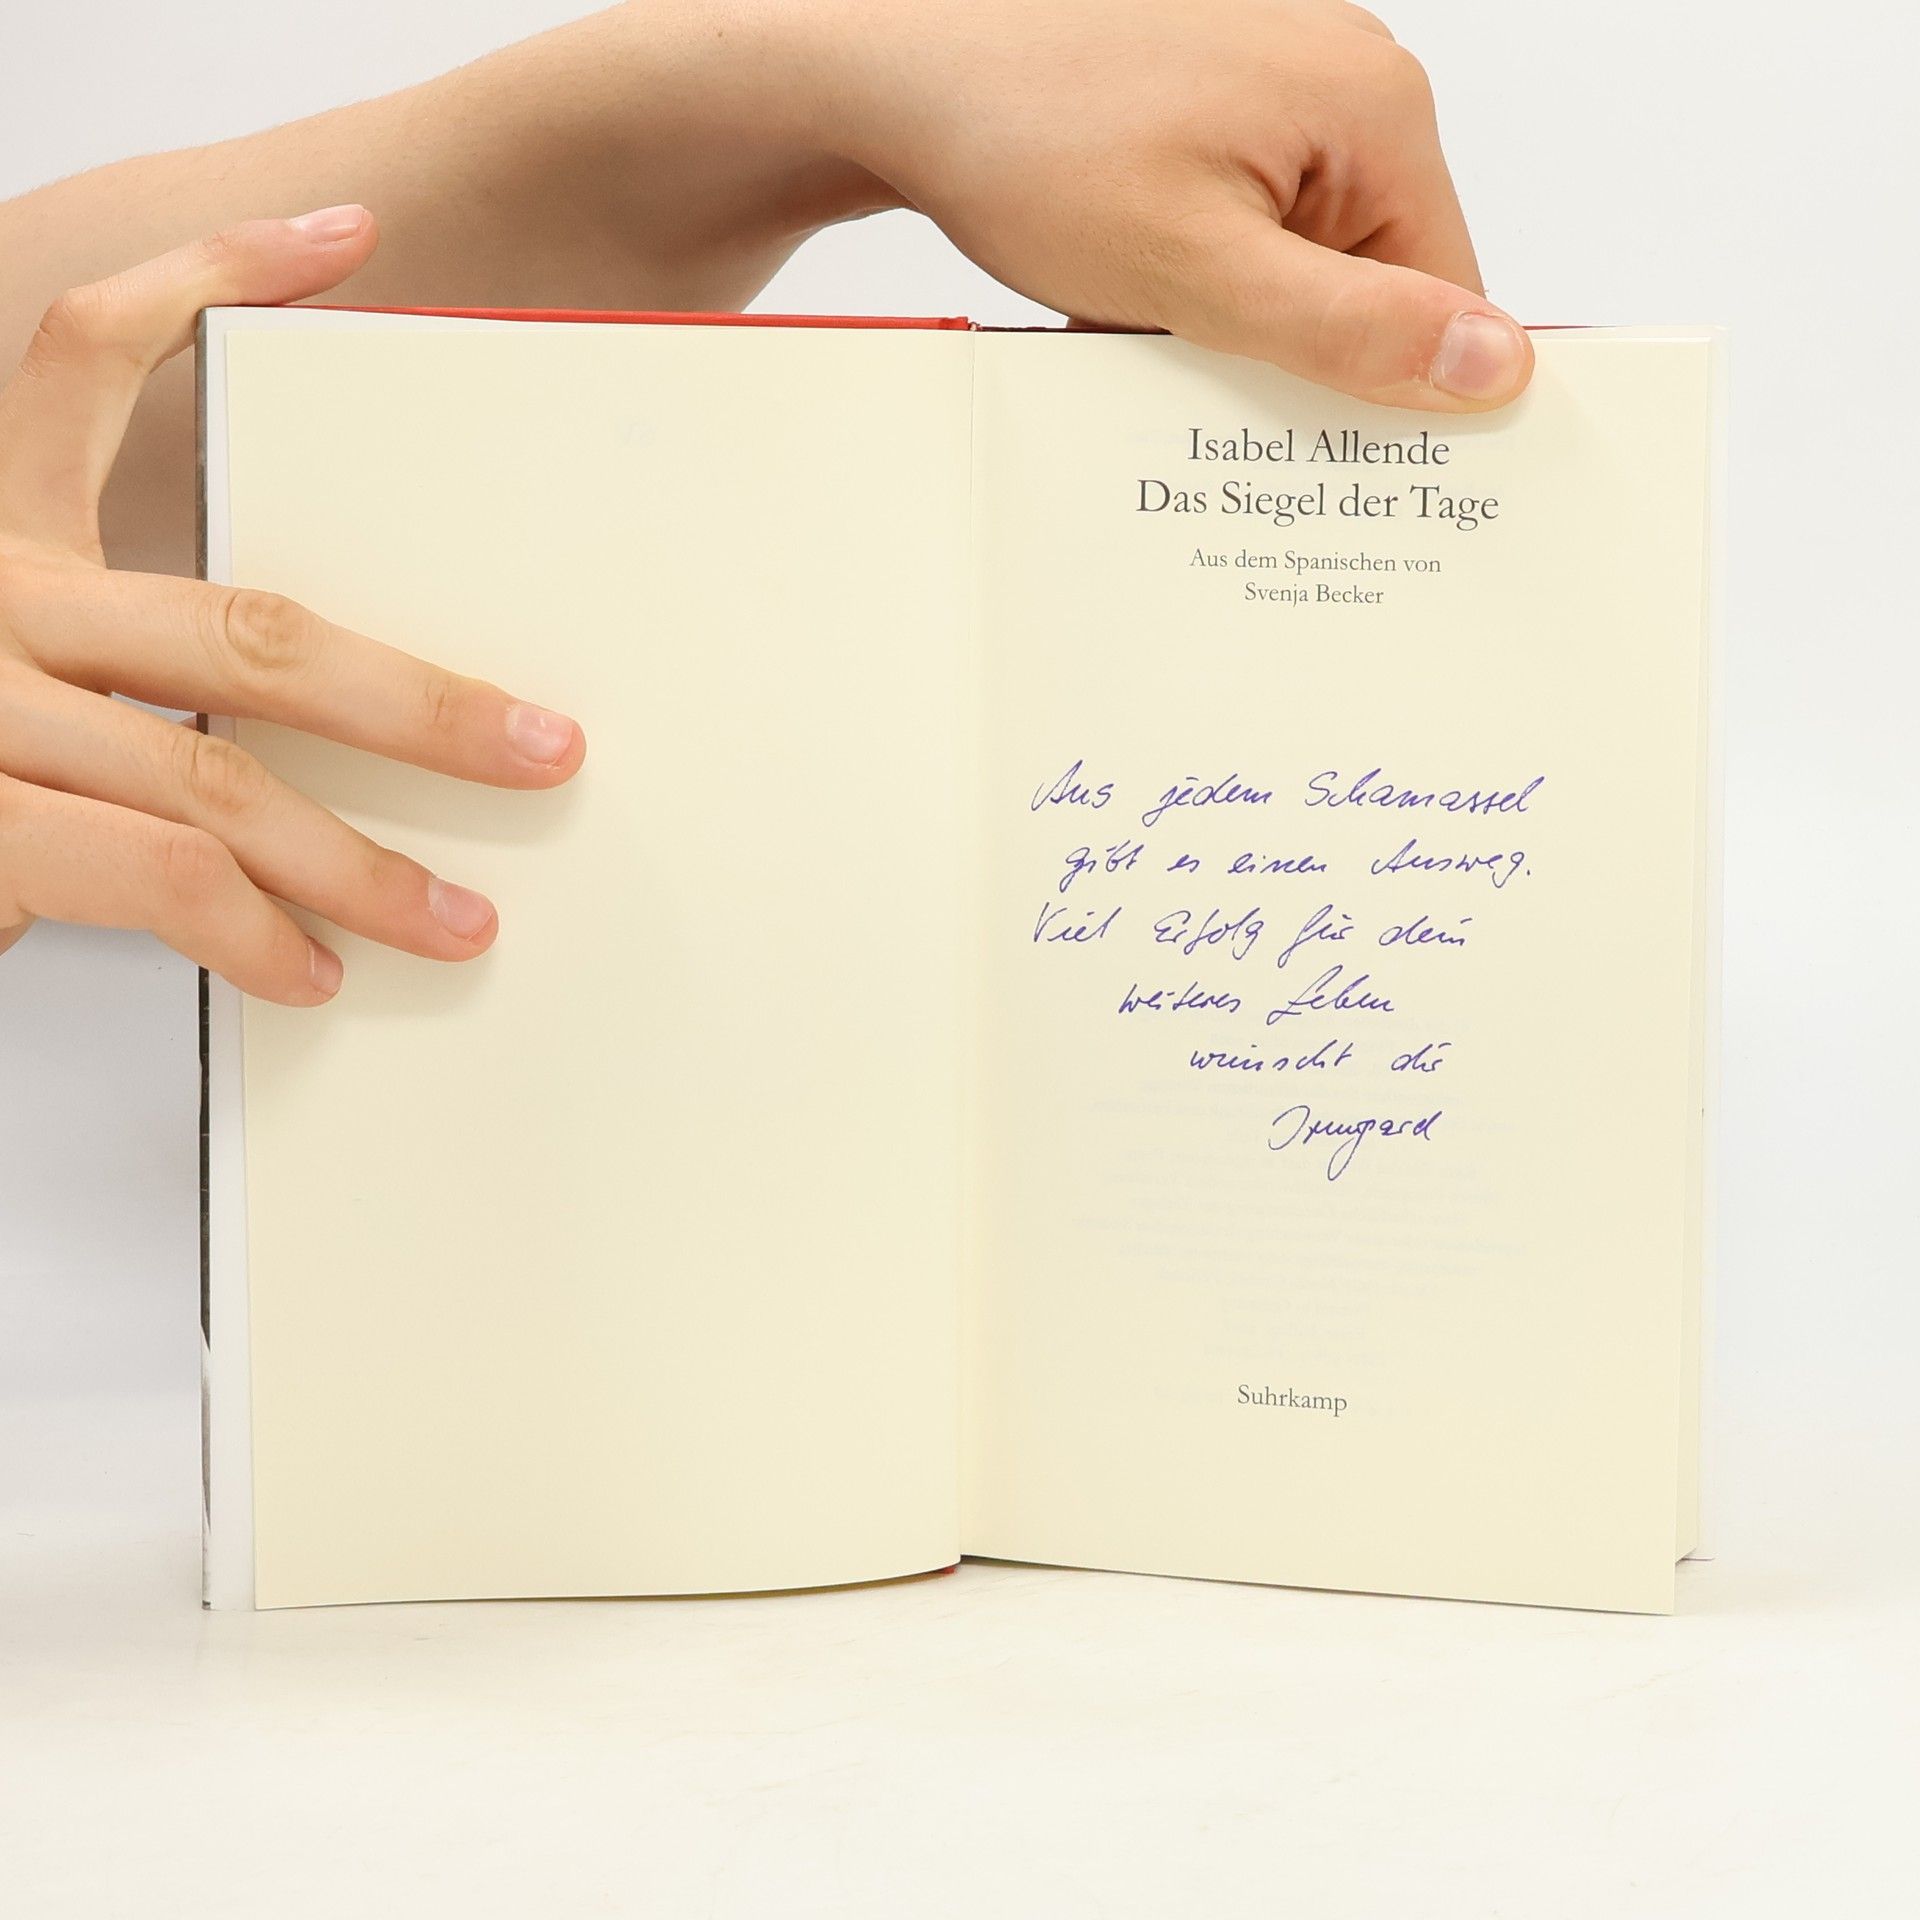 Isabel Allende
Das Siegel der Tage
Aus dem Spanischen von
Svenja Becker
Aus jedem Schamassel
gibt es einen Ausweg.
Viel Erfolg für dein
weiteres Leben
wünscht dir
Irmgard
Suhrkamp